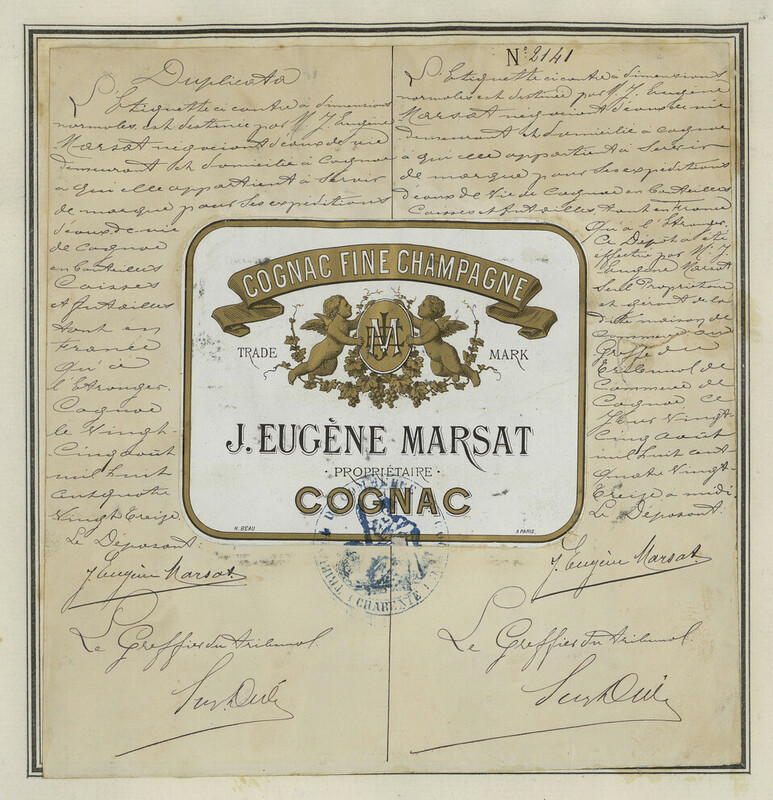 Duplicata
L'Etiquette ci contre à dimensions
normales, est destinée par Mr J. Eugène
Marsat négociant d'eaux de vie
demeurant et domicilié à Cognac
à qui elle appartient à servir
de marque pour ses expéditions
d'eaux de vie
de Cognac
en bouteilles
Caisses
et futailles
tant en
France
qu'à
l'Etranger.
Cognac
le Vingt-
Cinq août
mil huit
cent quatre
Vingt Treize.
Le Déposant:
J. Eugène Marsat
Le Greffier du tribunal.
N° 2141
L'Etiquette ci contre à dimensions
normales est destinée par Mr J. Eugène
Marsat négociant d'eaux de vie
demeurant et domicilié à Cognac
à qui elle appartient à servir
de marque pour ses expéditions
d'eaux de Vie de Cognac en bouteilles
Caisses et futailles, tant en France
qu'à l'Etranger.
Ce Dépôt a été
effectué par Mr J.
Eugène Marsat
Seul Propriétaire
et gérant de la
dite maison de
commerce au
Greffe du
Tribunal de
Commerce de
Cognac ce
Jour Vingt-
Cinq août
mil huit cent
quatre Vingt-
Treize à midi
Le Déposant.
J. Eugène Marsat
Le Greffier du tribunal.
COGNAC FINE CHAMPAGNE
JEM
TRADE MARK
J. EUGÈNE MARSAT
· PROPRIÉTAIRE ·
COGNAC
H. BEAU A PARIS.
(CHARENTE)